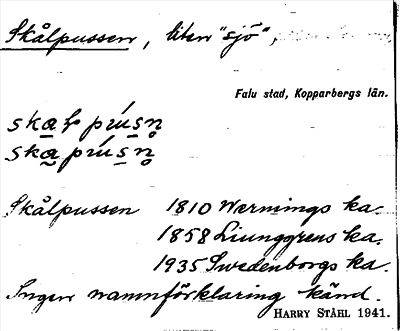 Skålpussen, liten "sjö",
Falu stad, Kopparbergs län.
Skålpussen 1810 Wernings ka.
1858 Ljunggrens ka.
1935 Swedenborgs ka.
Ingen namnförklaring känd.
HARRY STÅHL 1941.